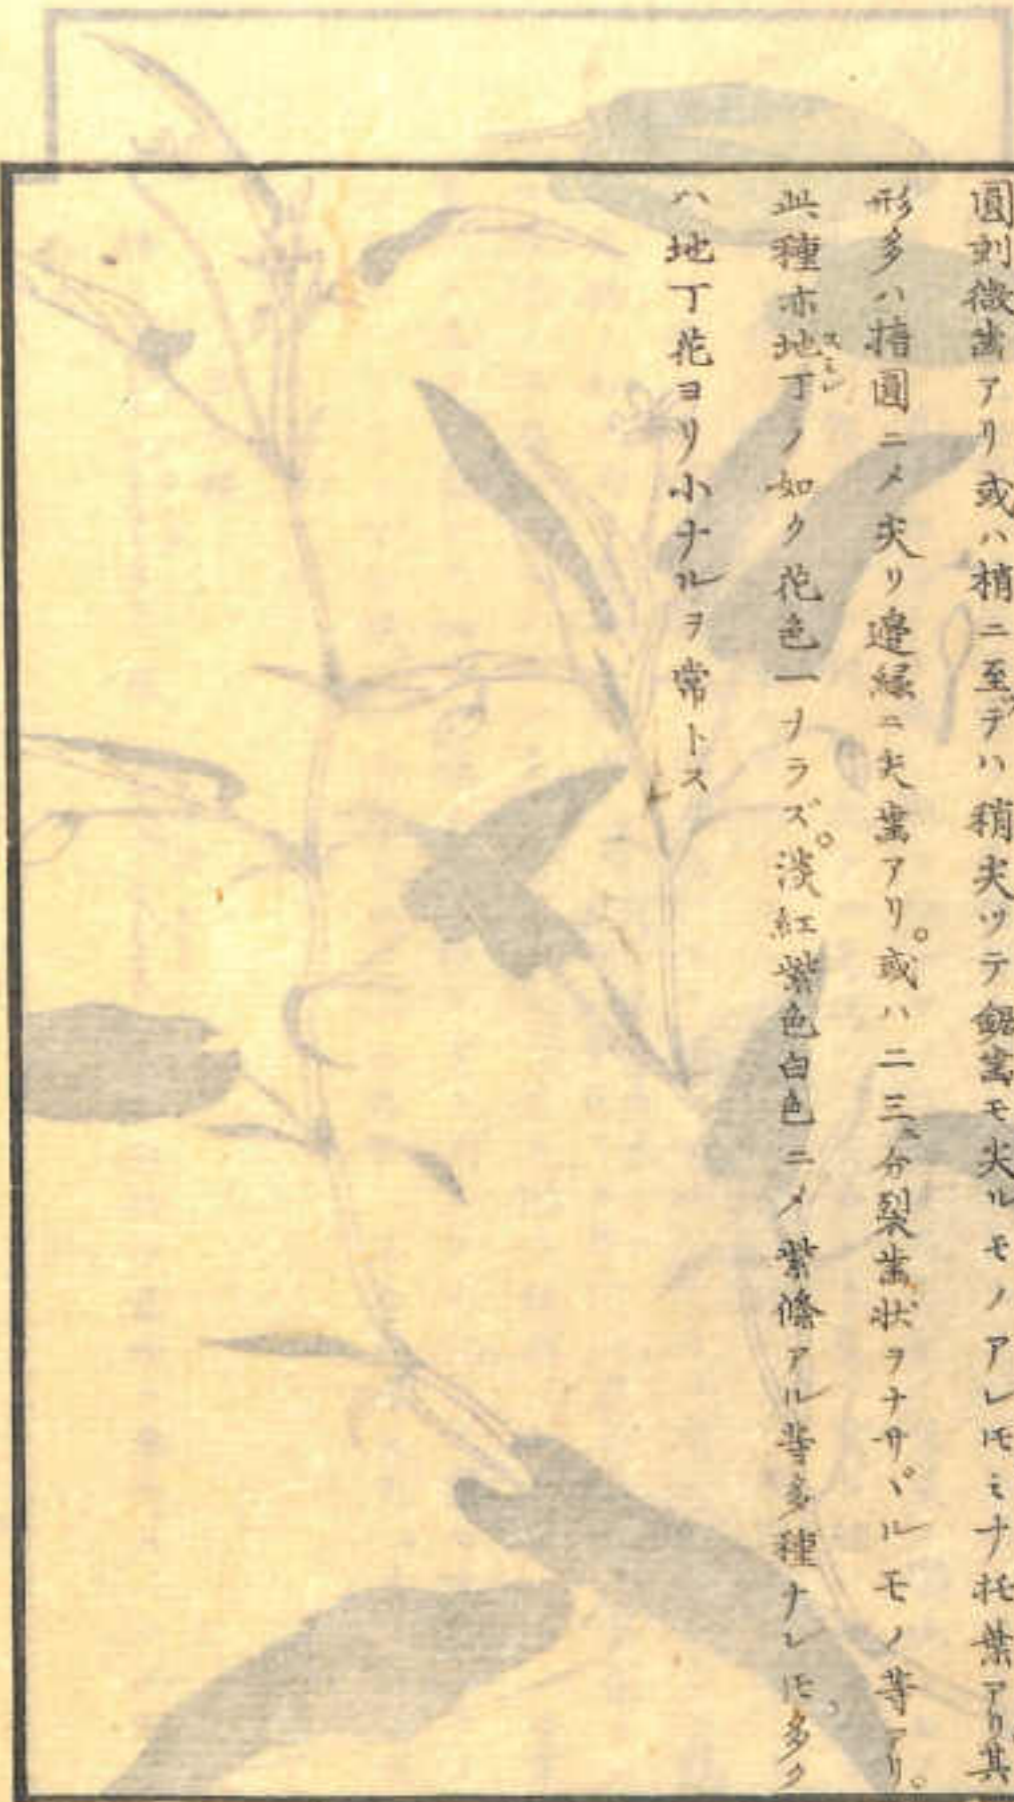 圓刻微齒アリ或ハ梢ニ至テハ稍尖ツテ鋸齒モ尖ルモノアレ𪜈ミナ托葉アリ其
形多ハ橢圓ニ〆尖リ邊緣ニ尖齒アリ。或ハ二三ニ分裂齒狀ヲナサヾルモノ等アリ。
此種亦地丁(スミレ)ノ如ク花色一ナラズ。淡紅紫色白色ニ〆紫條アル等多種ナレ𪜈多ク
ハ地丁花ヨリ小ナルヲ常トス